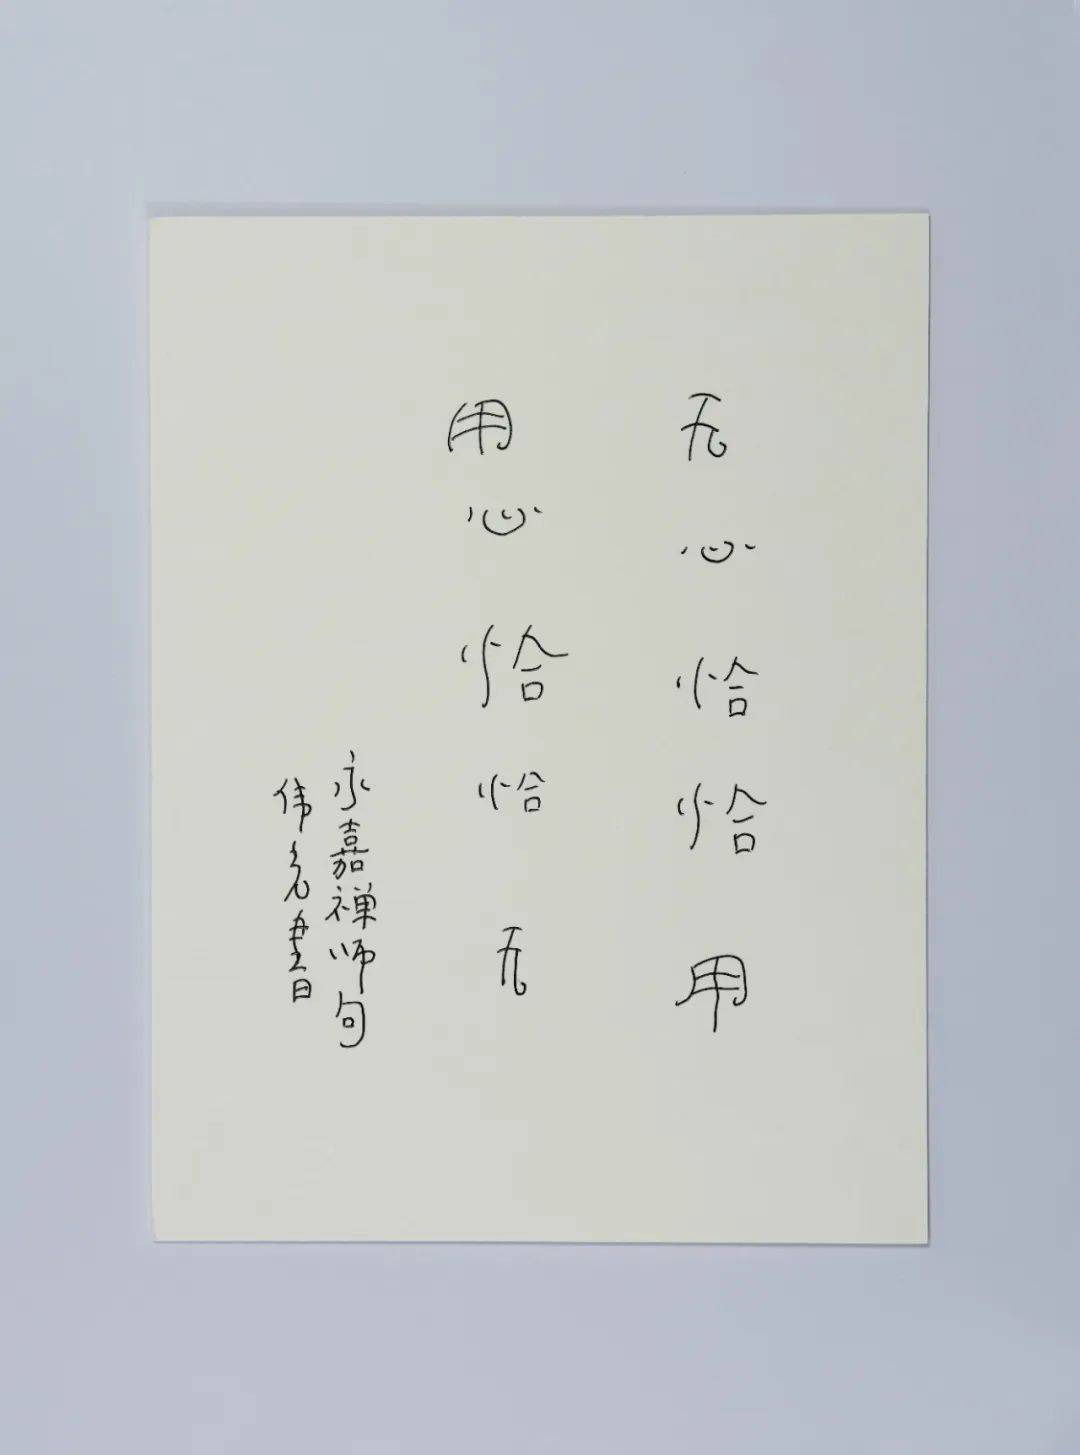 无心恰恰用
用心恰恰无
永嘉禅师句
伟尧書